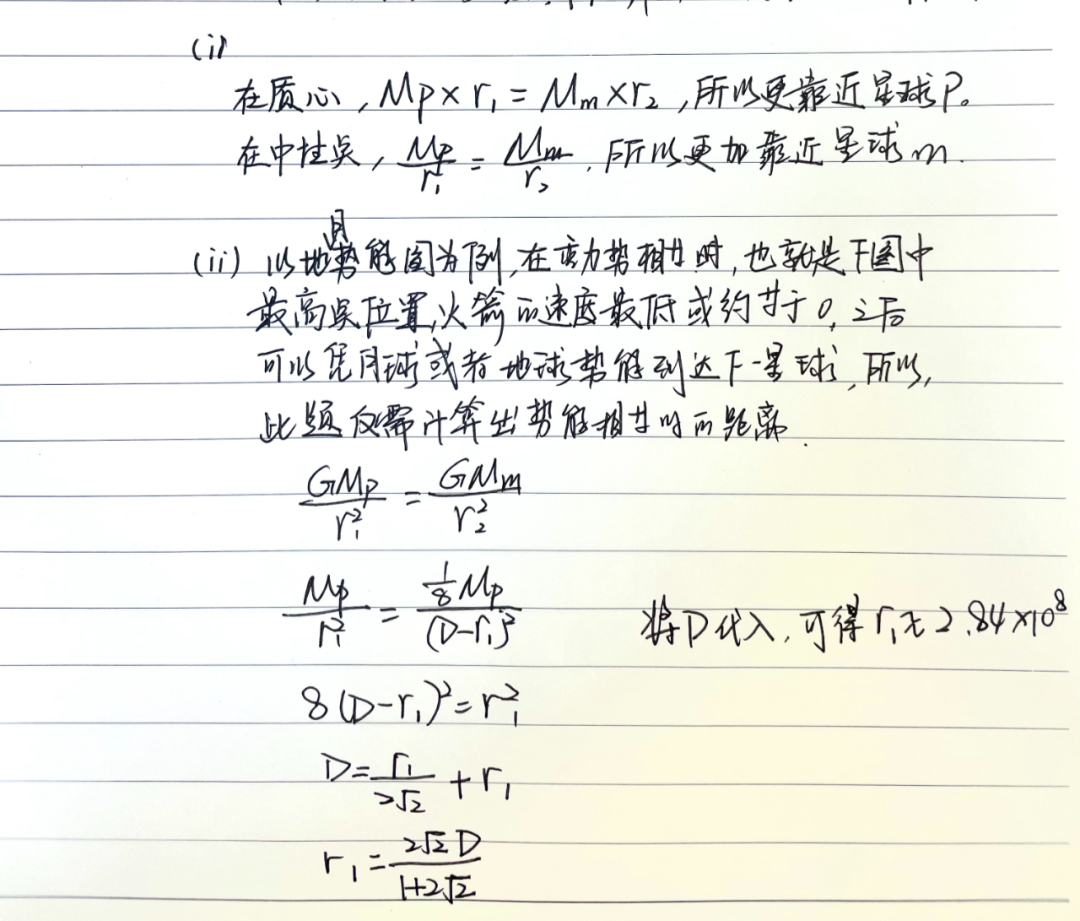 (i)
在质心，Mp×r₁=Mm×r₂，所以更靠近星球P。
在中性点，Mp/r₁²=Mm/r₂，所以更加靠近星球m.
月
(ii) 以地势能图为例，在重力势相等时，也就是下图中
最高点位置，火箭的速度最低或约等于0，之后
可以凭月球或者地球势能到达下一星球，所以，
此题仅需计算出势能相等时的距离.
GMp/r₁²=GMm/r₂²
Mp/r₁²=⅛Mp/(D-r₁)²
将D代入，可得r₁≈2.84×10⁸
8(D-r₁)²=r₁²
D=r₁/2√2+r₁
r₁=2√2D/1+2√2